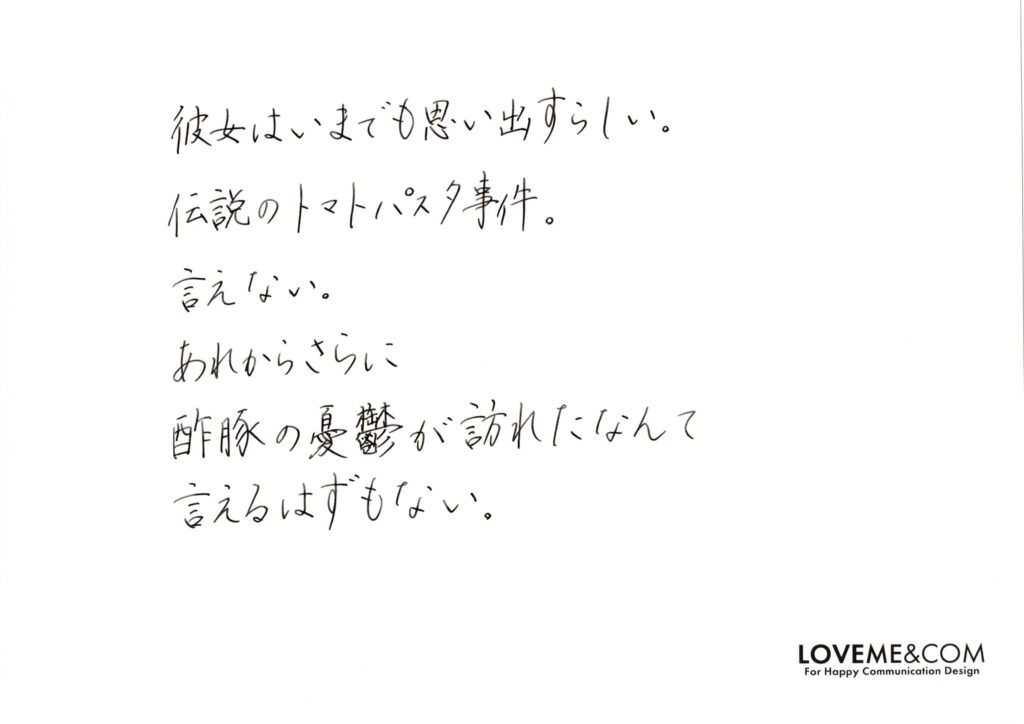 彼女はいまでも思い出すらしい。
伝説のトマトパスタ事件。
言えない。
あれからさらに
酢豚の憂鬱が訪れたなんて
言えるはずもない。
LOVEME&COM
For Happy Communication Design